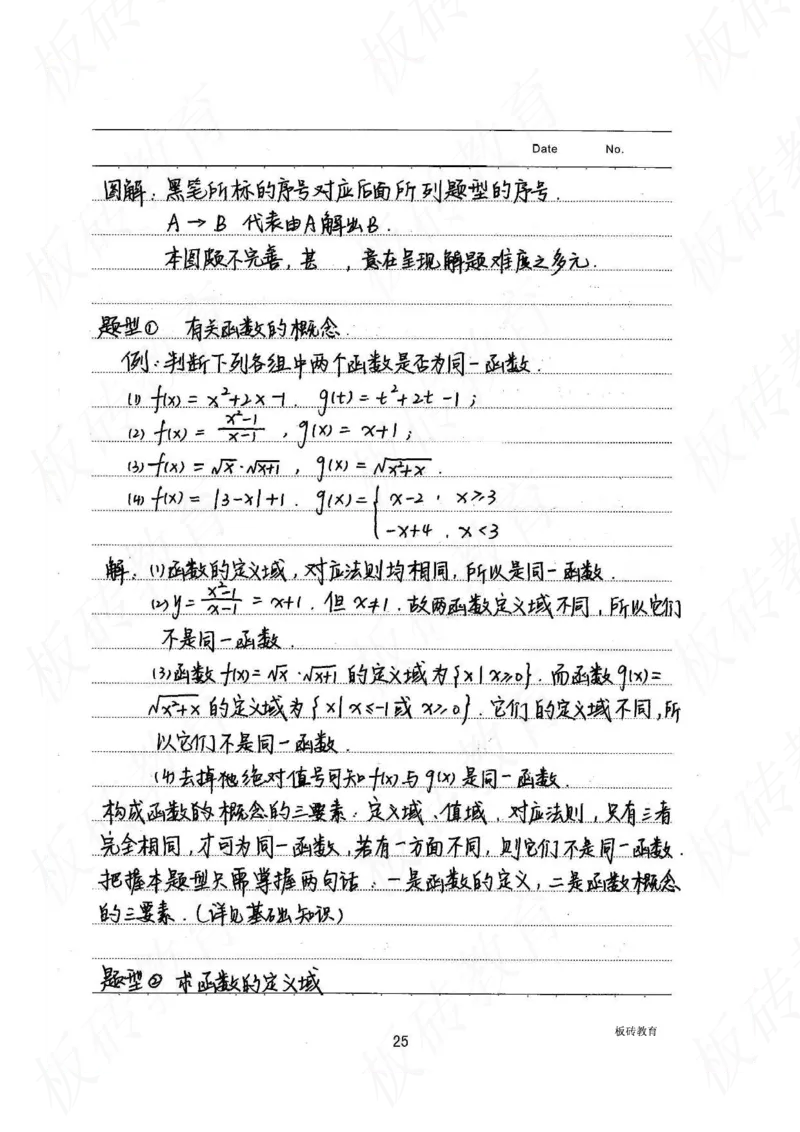 Date No.
图解：黑笔所标的序号对应后面所列题型的序号.
A → B 代表由A解出B.
本图颇不完善，甚 ，意在呈现解题难度之多元.
题型① 有关函数的概念.
例：判断下列各组中两个函数是否为同一函数.
(1) f(x) = x²+2x-1. g(t) = t²+2t-1；
(2) f(x) = \frac{x²-1}{x-1}，g(x) = x+1；
(3) f(x) = √x·√x+1，g(x) = √x²+x.
(4) f(x) = |3-x|+1. g(x) = { x-2，x≥3
-x+4，x<3
解：(1)函数的定义域，对应法则均相同，所以是同一函数.
(2) y = \frac{x²-1}{x-1} = x+1. 但 x≠1. 故两函数定义域不同，所以它们
不是同一函数.
(3)函数 f(x) = √x·√x+1 的定义域为{x|x≥0}. 而函数 g(x) =
√x²+x 的定义域为{x|x≤-1或 x≥0}. 它们的定义域不同，所
以它们不是同一函数.
(4)去掉绝对值号可知 f(x)与g(x)是同一函数.
构成函数的概念的三要素：定义域、值域、对应法则，只有三者
完全相同，才可为同一函数，若有一方面不同，则它们不是同一函数.
把握本题型只需掌握两句话：一是函数的定义，二是函数概念
的三要素.（详见基础知识）
题型② 求函数的定义域
25
板砖教育